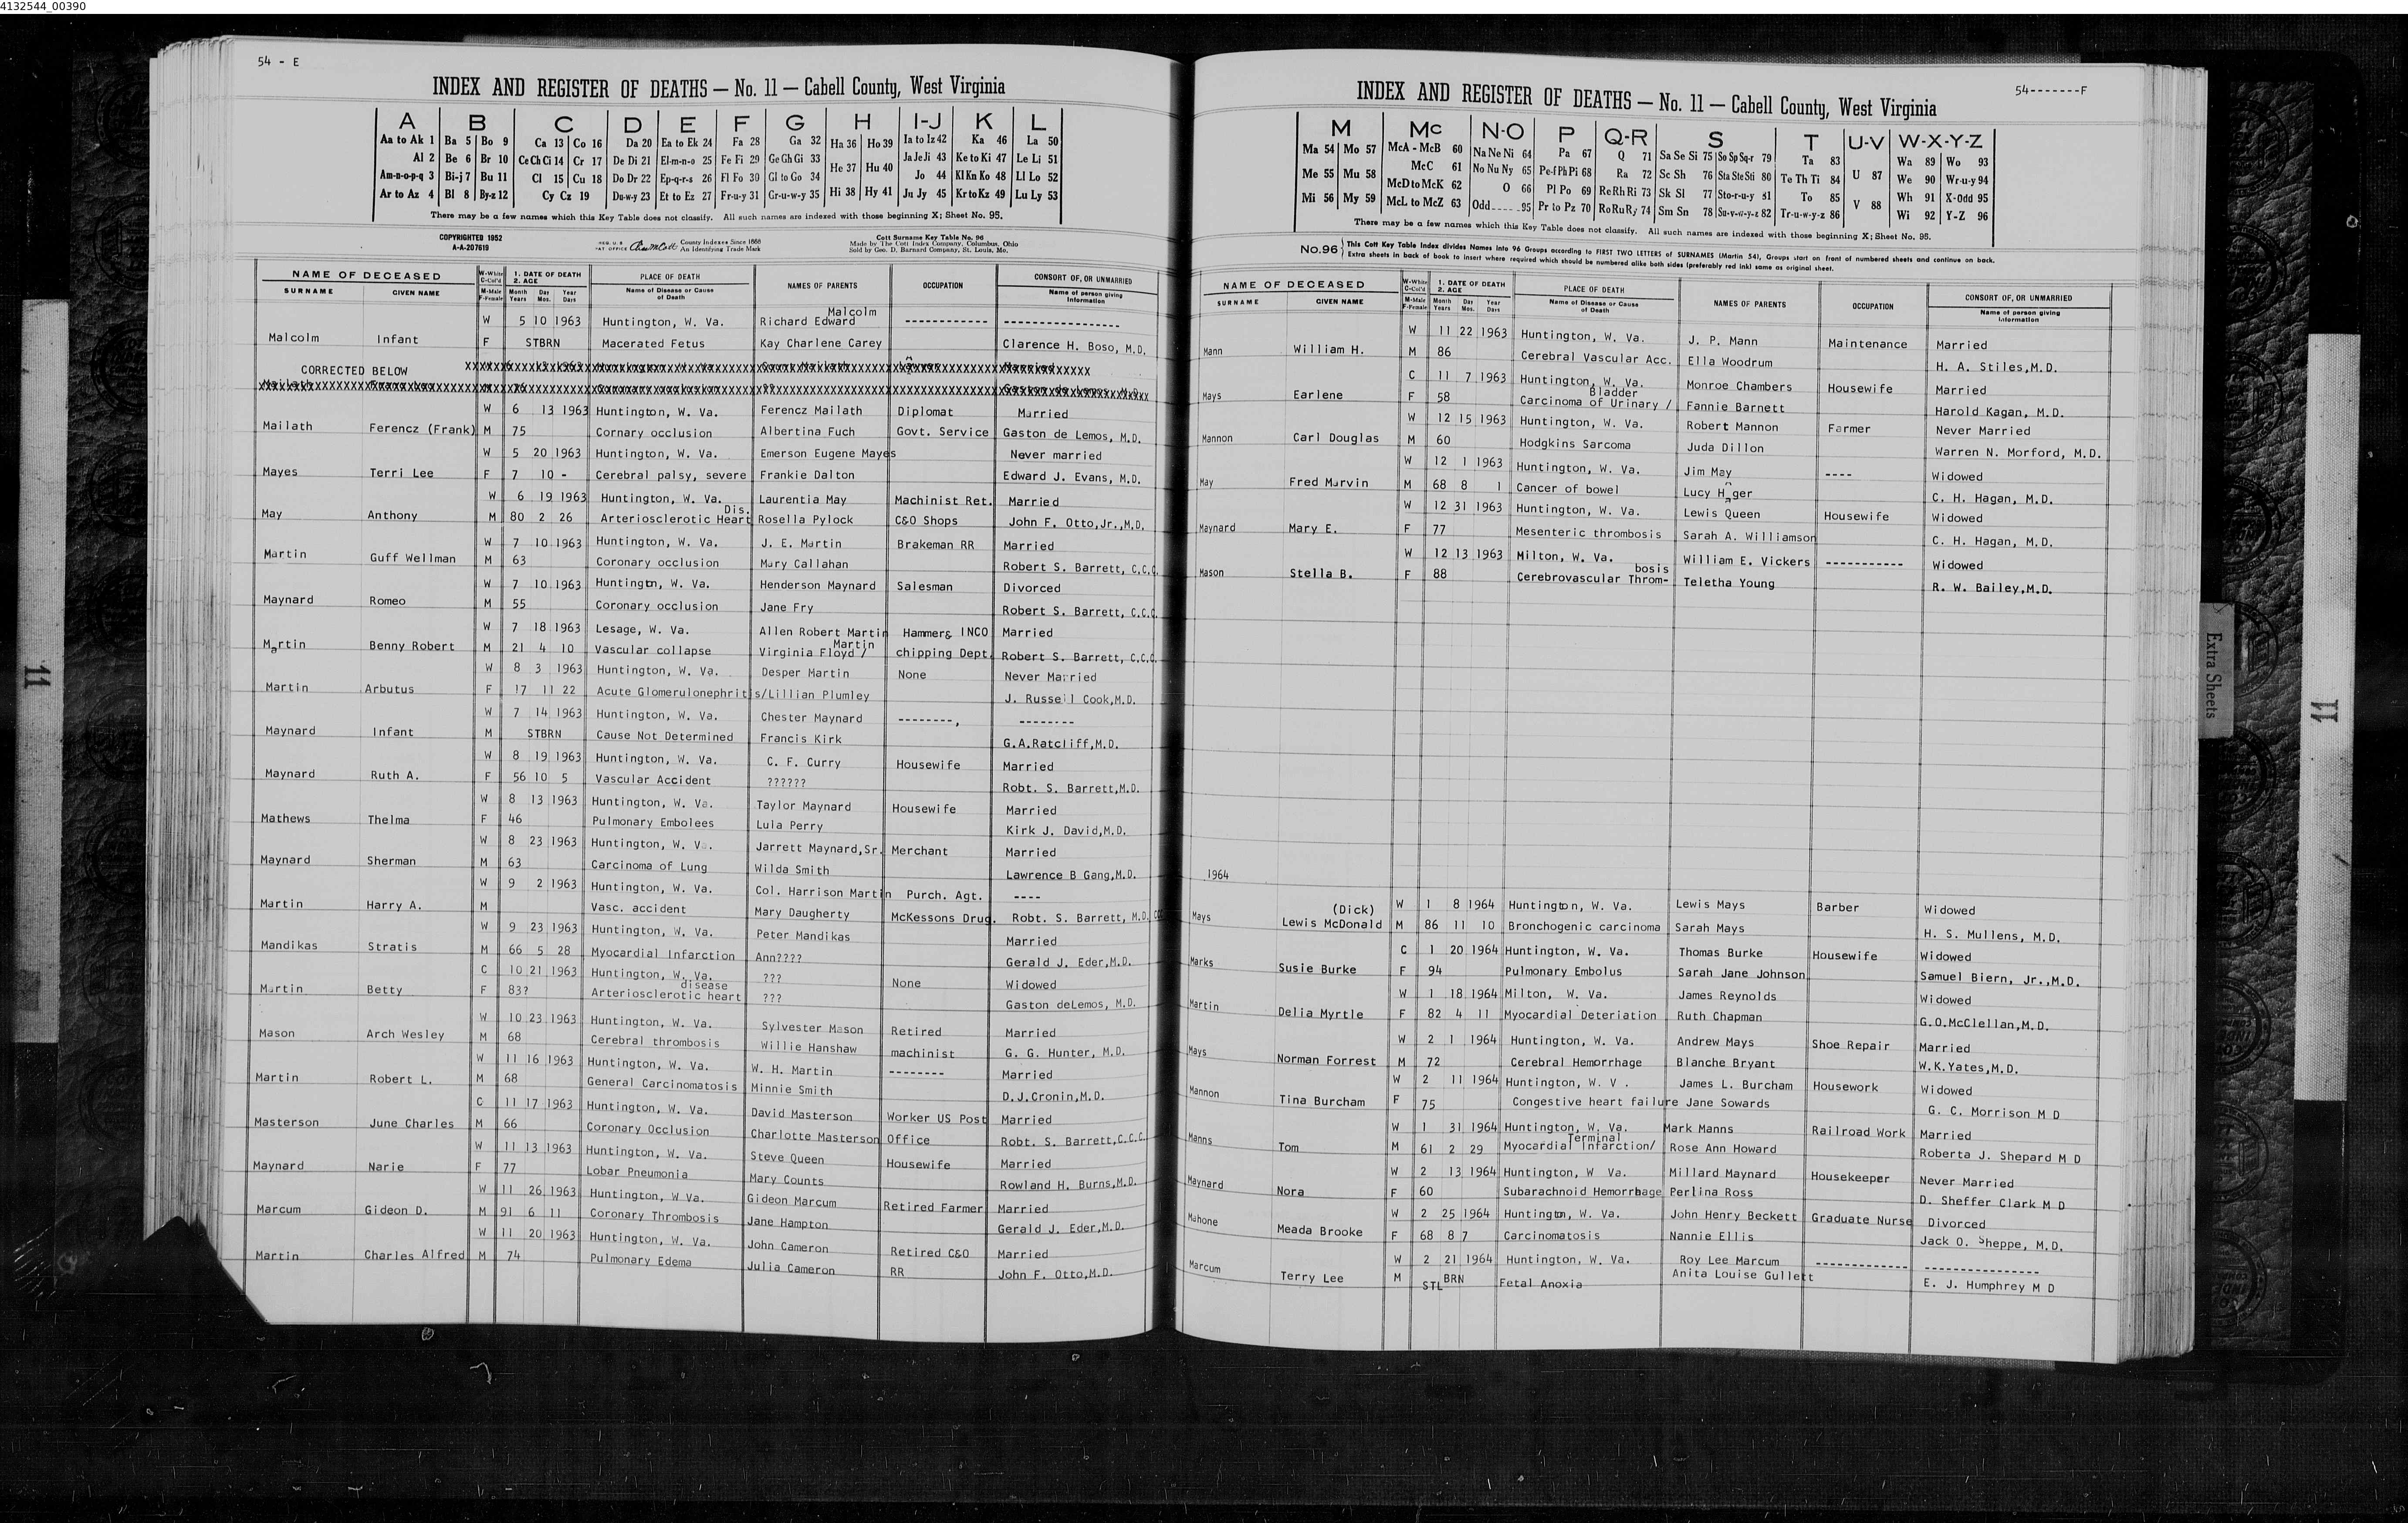 4132544_00390
54 - E
INDEX AND REGISTER OF DEATHS — No. 11 — Cabell County, West Virginia
A B C D E F G H I-J K L
Aa to Ak 1 Ba 5 Bo 9 Ca 13 Co 16 Da 20 Ea to Ek 24 Fa 28 Ga 32 Ha 36 Ho 39 Ia to Iz 42 Ka 46 La 50
Al 2 Be 6 Br 10 Ce Ch Ci 14 Cr 17 De Di 21 El-m-n-o 25 Fe Fi 29 Ge Gh Gi 33 He 37 Hu 40 Ja Je Ji 43 Ke to Ki 47 Le Li 51
Am-n-o-p-q 3 Bi-j 7 Bu 11 Cl 15 Cu 18 Do Dr 22 Ep-q-r-s 26 Fl Fo 30 Gl to Go 34 Hi 38 Hy 41 Jo 44 Kl Kn Ko 48 Ll Lo 52
Ar to Az 4 Bl 8 By-z 12 Cy Cz 19 Du-w-y 23 Et to Ez 27 Fr-u-y 31 Gr-u-w-y 35 Ju Jy 45 Kr to Kz 49 Lu Ly 53
There may be a few names which this Key Table does not classify. All such names are indexed with those beginning X; Sheet No. 95.
COPYRIGHTED 1952
A-A-207619
County Indexes Since 1888
An Identifying Trade Mark
Cott Surname Key Table No. 96
Made by The Cott Index Company, Columbus, Ohio
Sold by Geo. D. Barnard Company, St. Louis, Mo.
NAME OF DECEASED W-White C-Col'd 1. DATE OF DEATH 2. AGE PLACE OF DEATH NAMES OF PARENTS OCCUPATION CONSORT OF, OR UNMARRIED
SURNAME GIVEN NAME M-Male F-Female Month Day Year Years Mos. Days Name of Disease or Cause of Death Name of person giving Information
Malcolm
W 5 10 1963 Huntington, W. Va. Richard Edward ------------ -----------------
Malcolm Infant F STBRN Macerated Fetus Kay Charlene Carey Clarence H. Boso, M.D.
CORRECTED BELOW
W 6 13 1963 Huntington, W. Va. Ferencz Mailath Diplomat Married
Mailath Ferencz (Frank) M 75 Cornary occlusion Albertina Fuch Govt. Service Gaston de Lemos, M.D.
W 5 20 1963 Huntington, W. Va. Emerson Eugene Mayes Never married
Mayes Terri Lee F 7 10 - Cerebral palsy, severe Frankie Dalton Edward J. Evans, M.D.
W 6 19 1963 Huntington, W. Va. Laurentia May Machinist Ret. Married
May Anthony M 80 2 26 Arteriosclerotic Heart Dis. Rosella Pylock C&O Shops John F. Otto,Jr.,M.D.
W 7 10 1963 Huntington, W. Va. J. E. Martin Brakeman RR Married
Martin Guff Wellman M 63 Coronary occlusion Mary Callahan Robert S. Barrett, C.C.C.
W 7 10 1963 Huntingtn, W. Va. Henderson Maynard Salesman Divorced
Maynard Romeo M 55 Coronary occlusion Jane Fry Robert S. Barrett, C.C.C.
W 7 18 1963 Lesage, W. Va. Allen Robert Martin Hammer& INCO Married
Martin Benny Robert M 21 4 10 Vascular collapse Virginia Floyd / Martin chipping Dept. Robert S. Barrett, C.C.C.
W 8 3 1963 Huntington, W. Va. Desper Martin None Never Married
Martin Arbutus F 17 11 22 Acute Glomerulonephritis/Lillian Plumley J. Russell Cook,M.D.
W 7 14 1963 Huntington, W. Va. Chester Maynard --------, --------
Maynard Infant M STBRN Cause Not Determined Francis Kirk G.A.Ratcliff,M.D.
W 8 19 1963 Huntington, W. Va. C. F. Curry Housewife Married
Maynard Ruth A. F 56 10 5 Vascular Accident ?????? Robt. S. Barrett,M.D.
W 8 13 1963 Huntington, W. Va. Taylor Maynard Housewife Married
Mathews Thelma F 46 Pulmonary Embolees Lula Perry Kirk J. David,M.D.
W 8 23 1963 Huntington, W. Va. Jarrett Maynard,Sr. Merchant Married
Maynard Sherman M 63 Carcinoma of Lung Wilda Smith Lawrence B Gang,M.D.
W 9 2 1963 Huntington, W. Va. Col. Harrison Martin Purch. Agt. ----
Martin Harry A. M Vasc. accident Mary Daugherty McKessons Drug. Robt. S. Barrett, M.D. CCC
W 9 23 1963 Huntington, W. Va. Peter Mandikas Married
Mandikas Stratis M 66 5 28 Myocardial Infarction Ann???? Gerald J. Eder,M.D.
C 10 21 1963 Huntington, W. Va. ??? None Widowed
Martin Betty F 83? Arteriosclerotic heart disease ??? Gaston deLemos, M.D.
W 10 23 1963 Huntington, W. Va. Sylvester Mason Retired Married
Mason Arch Wesley M 68 Cerebral thrombosis Willie Hanshaw machinist G. G. Hunter, M.D.
W 11 16 1963 Huntington, W. Va. W. H. Martin -------- Married
Martin Robert L. M 68 General Carcinomatosis Minnie Smith D.J.Cronin,M.D.
C 11 17 1963 Huntington, W. Va. David Masterson Worker US Post Married
Masterson June Charles M 66 Coronary Occlusion Charlotte Masterson Office Robt. S. Barrett,C.C.C.
W 11 13 1963 Huntington, W. Va. Steve Queen Housewife Married
Maynard Narie F 77 Lobar Pneumonia Mary Counts Rowland H. Burns,M.D.
W 11 26 1963 Huntington, W Va. Gideon Marcum Retired Farmer Married
Marcum Gideon D. M 91 6 11 Coronary Thrombosis Jane Hampton Gerald J. Eder,M.D.
W 11 20 1963 Huntington, W. Va. John Cameron Retired C&O Married
Martin Charles Alfred M 74 Pulmonary Edema Julia Cameron RR John F. Otto,M.D.
54-------F
INDEX AND REGISTER OF DEATHS — No. 11 — Cabell County, West Virginia
M Mc N-O P Q-R S T U-V W-X-Y-Z
Ma 54 Mo 57 McA - McB 60 Na Ne Ni 64 Pa 67 Q 71 Sa Se Si 75 So Sp Sq-r 79 Ta 83 U 87 Wa 89 Wo 93
Me 55 Mu 58 McC 61 No Nu Ny 65 Pe-f Ph Pi 68 Ra 72 Sc Sh 76 Sta Ste Sti 80 Te Th Ti 84 We 90 Wr-u-y 94
Mi 56 My 59 McD to McK 62 O 66 Pl Po 69 Re Rh Ri 73 Sk Sl 77 Sto-r-u-y 81 To 85 V 88 Wh 91 X-Odd 95
McL to McZ 63 Odd 95 Pr to Pz 70 Ro Ru Ry 74 Sm Sn 78 Su-v-w-y-z 82 Tr-u-w-y-z 86 Wi 92 Y-Z 96
There may be a few names which this Key Table does not classify. All such names are indexed with those beginning X; Sheet No. 95.
No. 96 This Cott Key Table Index divides Names into 96 Groups according to FIRST TWO LETTERS of SURNAMES (Martin 54), Groups start on front of numbered sheets and continue on back.
Extra sheets in back of book to insert where required which should be numbered alike both sides (preferably red ink) same as original sheet.
NAME OF DECEASED W-White C-Col'd 1. DATE OF DEATH 2. AGE PLACE OF DEATH NAMES OF PARENTS OCCUPATION CONSORT OF, OR UNMARRIED
SURNAME GIVEN NAME M-Male F-Female Month Day Year Years Mos. Days Name of Disease or Cause of Death Name of person giving Information
W 11 22 1963 Huntington, W. Va. J. P. Mann Maintenance Married
Mann William H. M 86 Cerebral Vascular Acc. Ella Woodrum H. A. Stiles,M.D.
C 11 7 1963 Huntington, W. Va. Monroe Chambers Housewife Married
Mays Earlene F 58 Carcinoma of Urinary / Bladder Fannie Barnett Harold Kagan, M.D.
W 12 15 1963 Huntington, W. Va. Robert Mannon Farmer Never Married
Mannon Carl Douglas M 60 Hodgkins Sarcoma Juda Dillon Warren N. Morford, M.D.
W 12 1 1963 Huntington, W. Va. Jim May ---- Widowed
May Fred Marvin M 68 8 1 Cancer of bowel Lucy Hager C. H. Hagan, M.D.
W 12 31 1963 Huntington, W. Va. Lewis Queen Housewife Widowed
Maynard Mary E. F 77 Mesenteric thrombosis Sarah A. Williamson C. H. Hagan, M.D.
W 12 13 1963 Milton, W. Va. William E. Vickers ----------- Widowed
Mason Stella B. F 88 Cerebrovascular Throm- bosis Teletha Young R. W. Bailey,M.D.
1964
(Dick) W 1 8 1964 Huntingtn, W. Va. Lewis Mays Barber Widowed
Mays Lewis McDonald M 86 11 10 Bronchogenic carcinoma Sarah Mays H. S. Mullens, M.D.
C 1 20 1964 Huntington, W. Va. Thomas Burke Housewife Widowed
Marks Susie Burke F 94 Pulmonary Embolus Sarah Jane Johnson Samuel Biern, Jr.,M.D.
W 1 18 1964 Milton, W. Va. James Reynolds Widowed
Martin Delia Myrtle F 82 4 11 Myocardial Deteriation Ruth Chapman G.O.McClellan,M.D.
W 2 1 1964 Huntington, W. Va. Andrew Mays Shoe Repair Married
Mays Norman Forrest M 72 Cerebral Hemorrhage Blanche Bryant W.K.Yates,M.D.
W 2 11 1964 Huntington, W. V . James L. Burcham Housework Widowed
Mannon Tina Burcham F 75 Congestive heart failure Jane Sowards G. C. Morrison M D
W 1 31 1964 Huntington, W. Va. Mark Manns Railroad Work Married
Manns Tom M 61 2 29 Myocardial Infarction/ Terminal Rose Ann Howard Roberta J. Shepard M D
W 2 13 1964 Huntington, W Va. Millard Maynard Housekeeper Never Married
Maynard Nora F 60 Subarachnoid Hemorrhage Perlina Ross D. Sheffer Clark M D
W 2 25 1964 Huntingtn, W. Va. John Henry Beckett Graduate Nurse Divorced
Mahone Meada Brooke F 68 8 7 Carcinomatosis Nannie Ellis Jack O. Sheppe, M.D.
W 2 21 1964 Huntington, W. Va. Roy Lee Marcum ------------- ----------------
Marcum Terry Lee M STL BRN Fetal Anoxia Anita Louise Gullett E. J. Humphrey M D
11
Extra Sheets
11